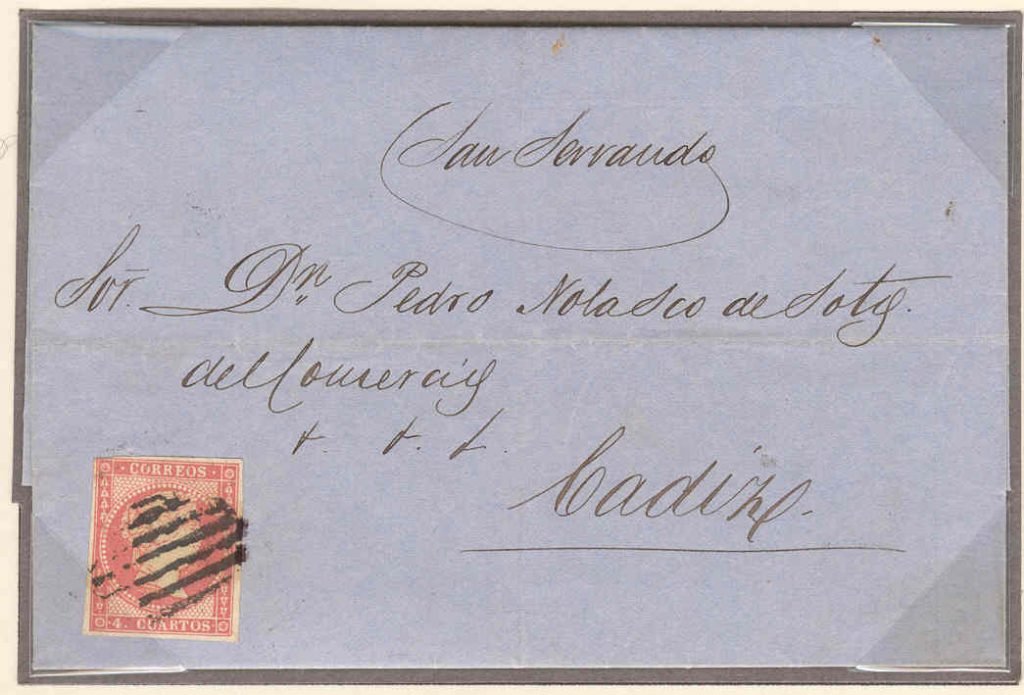 San Servando
Sor. Dn. Pedro Nolasco de Soto.
del Comercio
&. &. &.
Cadiz.
CORREOS
4. CUARTOS